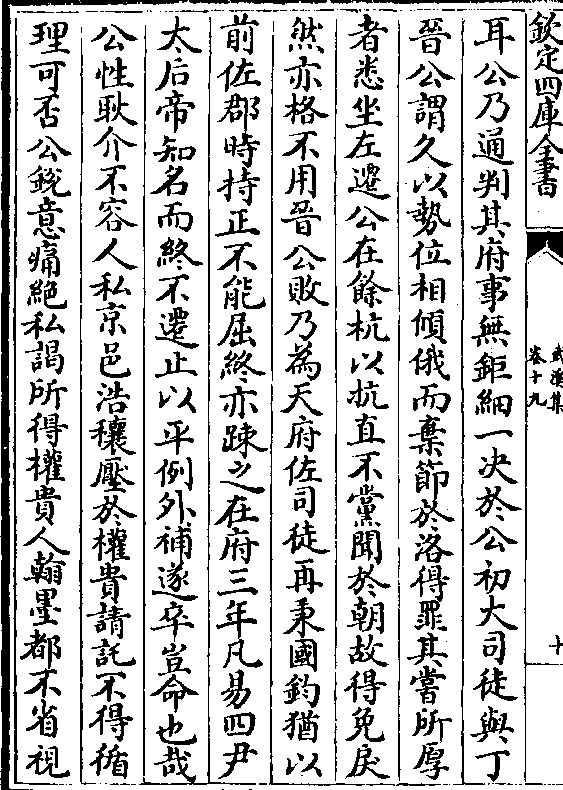 欽定四庫全書
武溪集
卷十九
十
耳公乃通判其府事無鉅細一决於公初大司徒與丁
晉公謂久以勢位相傾俄而棄節於洛得罪其嘗所厚
者悉坐左遷公在餘杭以抗直不黨聞於朝故得免戾
然亦格不用晉公敗乃為天府佐司徒再秉國鈞猶以
前佐郡時持正不能屈終亦踈之在府三年凡易四尹
太后帝知名而終不遷止以平例外補遂卒豈命也哉
公性耿介不容人私京邑浩穰壓於權貴請託不得循
理可否公銳意痛絶私謁所得權貴人翰墨都不省視